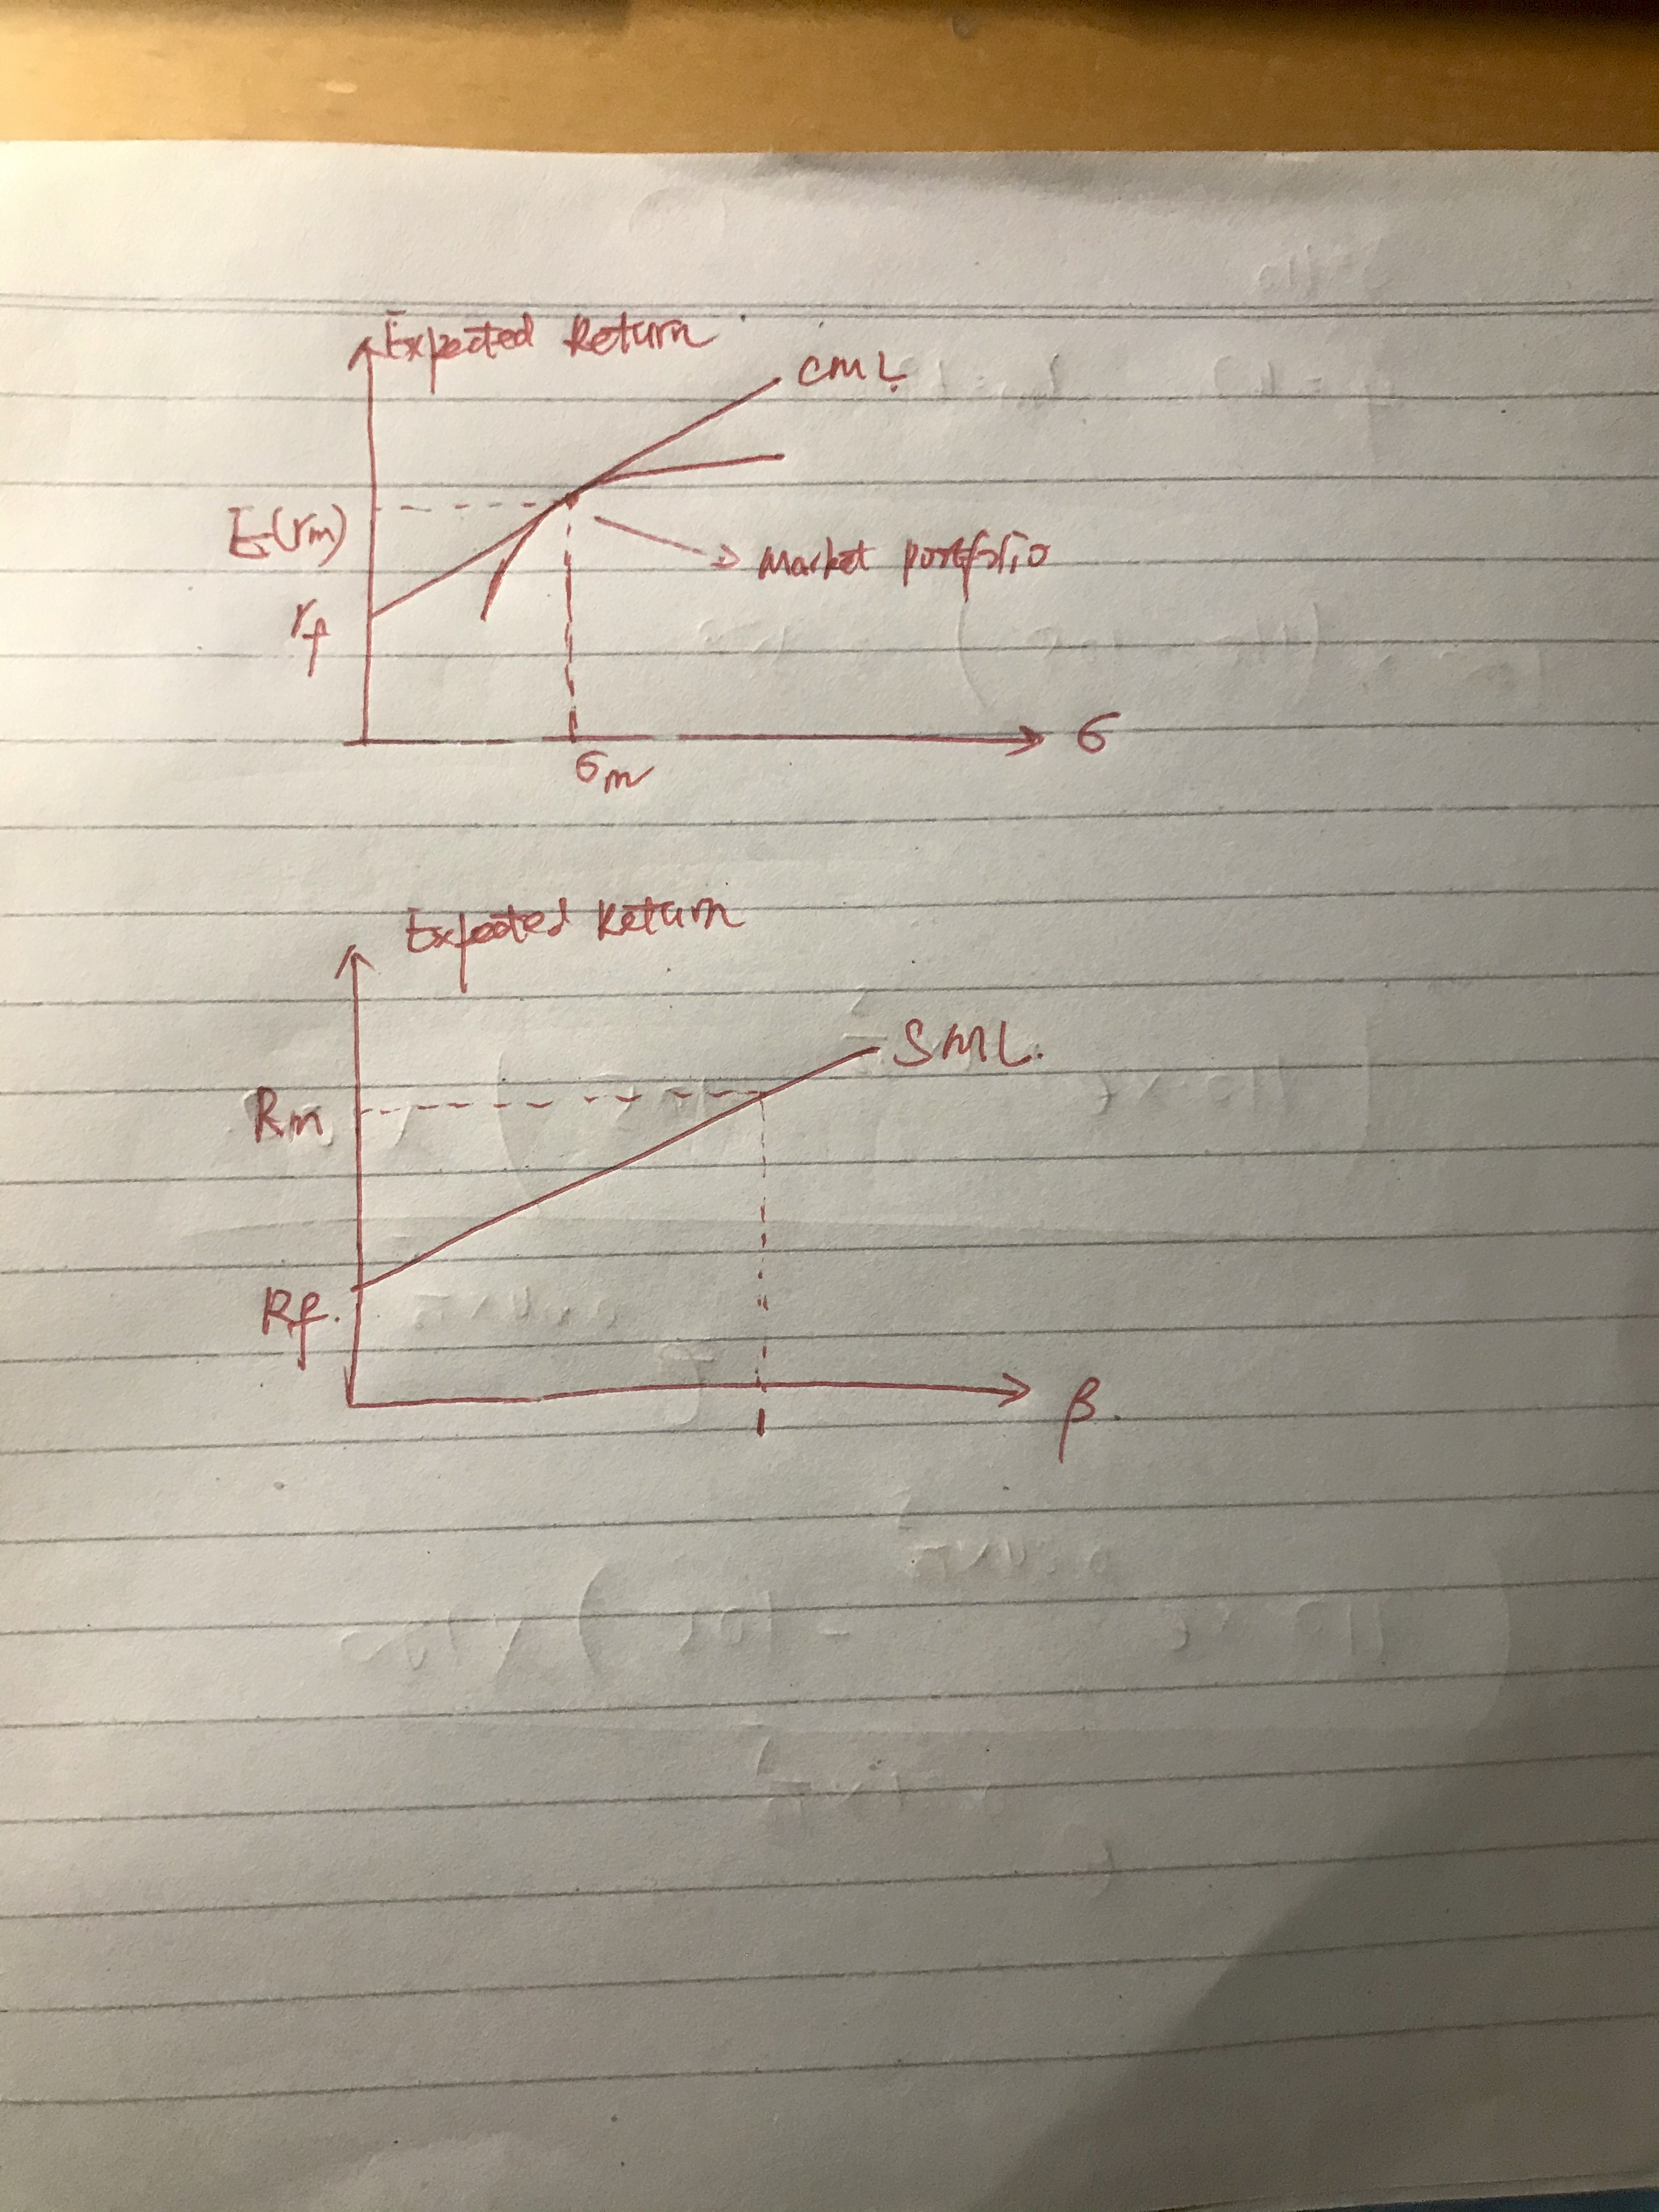 Expected Return
CML
E(rm)
Market portfolio
rf
σ
σm
Expected Return
SML.
Rm
Rf.
β.
1